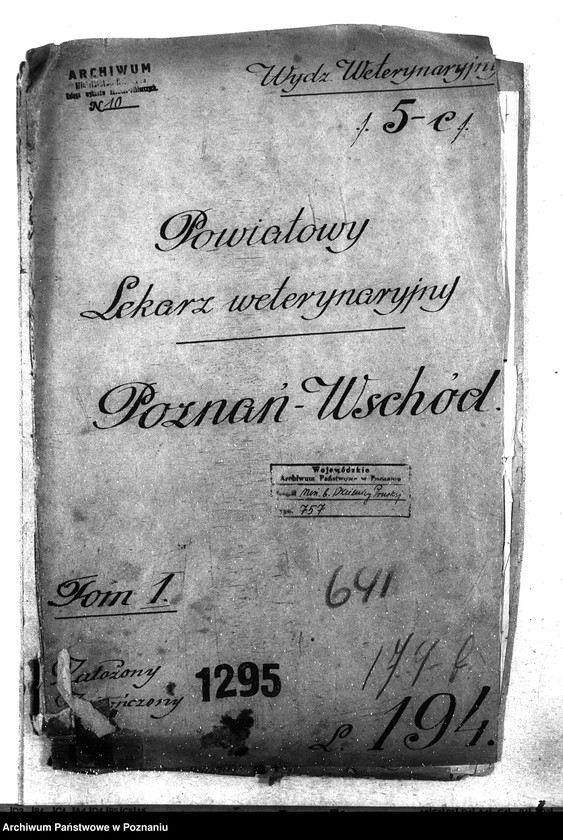 ARCHIWUM
N 10
Wydz Weterynaryjny
f. 5-c f.
Powiatowy
Lekarz weterynaryjny
Poznań-Wschód.
Wojewódzkie
Archiwum Państwowe w Poznaniu
757
Tom 1.
641
Założony
1295
L. 194.
Archiwum Państwowe w Poznaniu